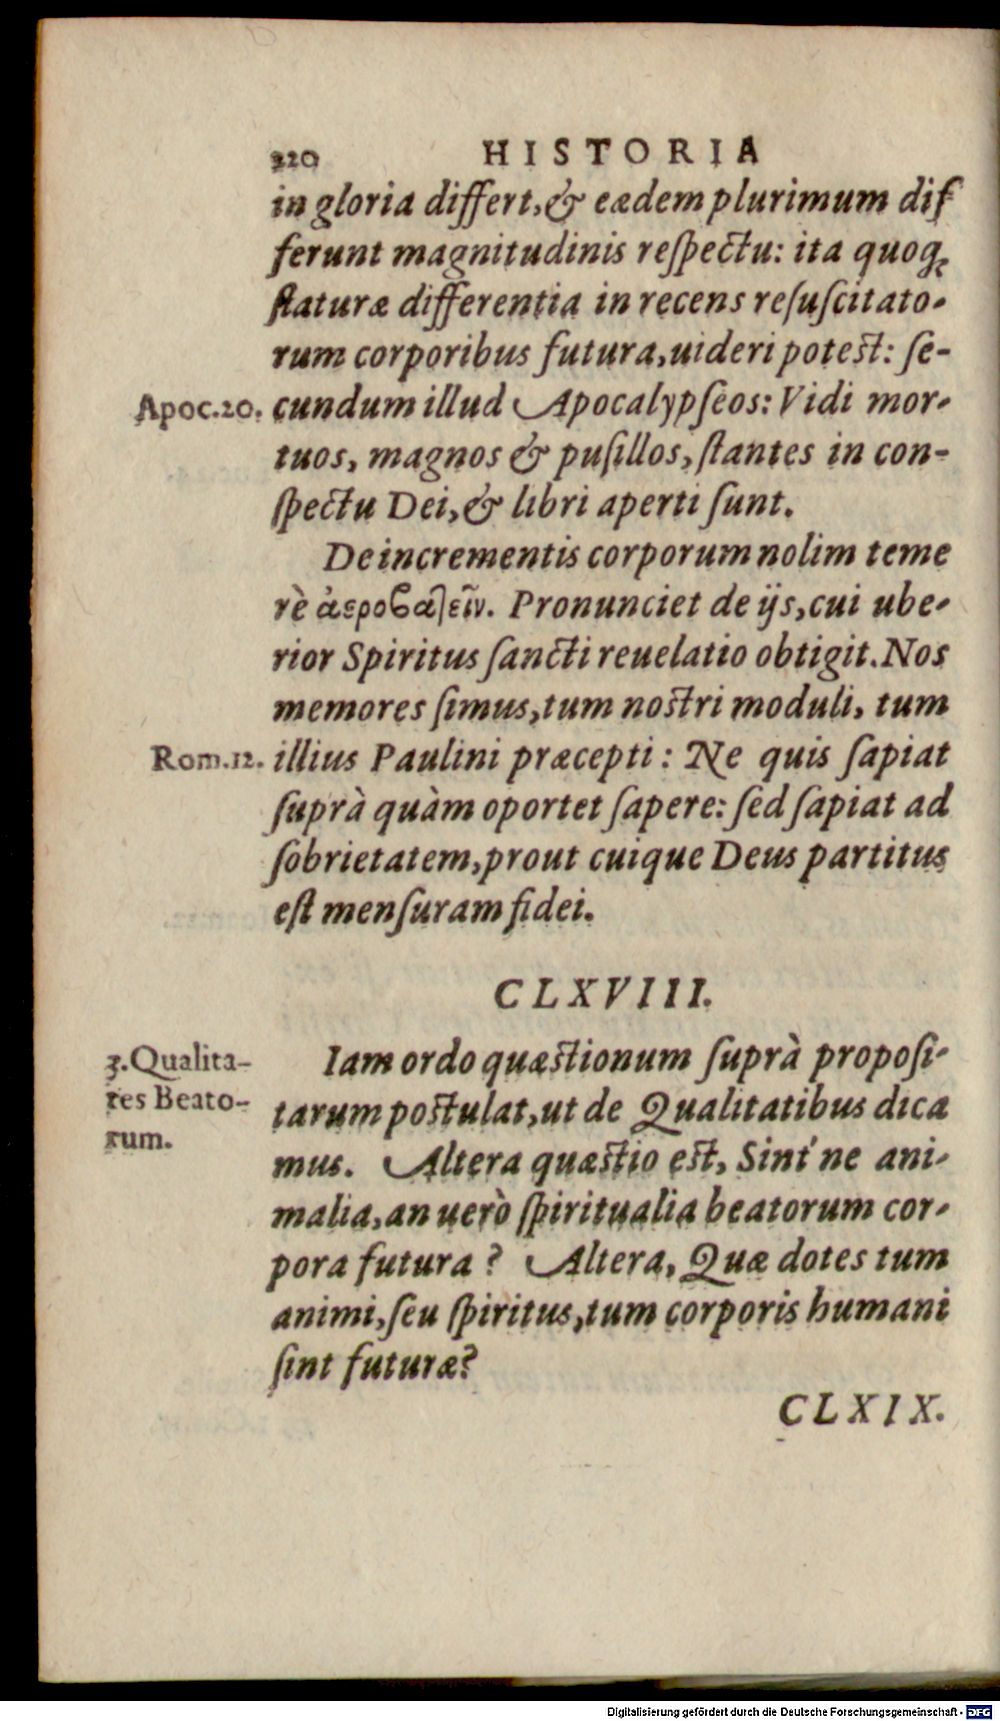 220 HISTORIA
in gloria differt, & eædem plurimum dif
ferunt magnitudinis reſpectu: ita quoq;
ſtaturæ differentia in recens reſuſcitato-
rum corporibus futura, uideri poteſt: ſe-
Apoc.20. cundum illud Apocalypſeos: Vidi mor-
tuos, magnos & puſillos, ſtantes in con-
ſpectu Dei, & libri aperti ſunt.
De incrementis corporum nolim teme
rè ἀεροβατεῖν. Pronunciet de ijs, cui ube-
rior Spiritus ſancti reuelatio obtigit. Nos
memores ſimus, tum noſtri moduli, tum
Rom.12. illius Paulini præcepti: Ne quis ſapiat
ſuprà quàm oportet ſapere: ſed ſapiat ad
ſobrietatem, prout cuique Deus partitus
eſt menſuram fidei.
CLXVIII.
3. Qualita-
tes Beato-
rum.
Iam ordo quæſtionum ſuprà propoſi-
tarum poſtulat, ut de Qualitatibus dica
mus. Altera quæſtio eſt, Sint'ne ani-
malia, an uerò ſpiritualia beatorum cor-
pora futura? Altera, Quæ dotes tum
animi, ſeu ſpiritus, tum corporis humani
ſint futuræ?
CLXIX.
Digitalisierung gefördert durch die Deutsche Forschungsgemeinschaft - DFG